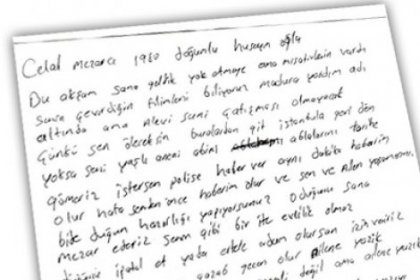 Celal mezara 1980 doğumlu huseyin oğlu
Bu akşam sana geldik yok etmeye ama misafirlerin vardı
Senin çevirdiğin filimleri biliyoruz yardım adı
altında ama Alevi suni çatışması olmayacak
Çünkü sen öleceksin buralardan git istanbula geri dön
yoksa seni yaşlı aneni abini ablalarını
gömeriz istersen polise haber ver aynı dakika haberim
olur hata senden önce haberim olur ve sen ve Ailen yaşayamaz
bide düğün hazırlığı yapıyorsunuz Düğünü sana
mezar ederiz senin gibi bir ite evlilik olmaz
iptal et yada erkek adam olursan izin veririz
geçen olur Ailene yazık
değil ama